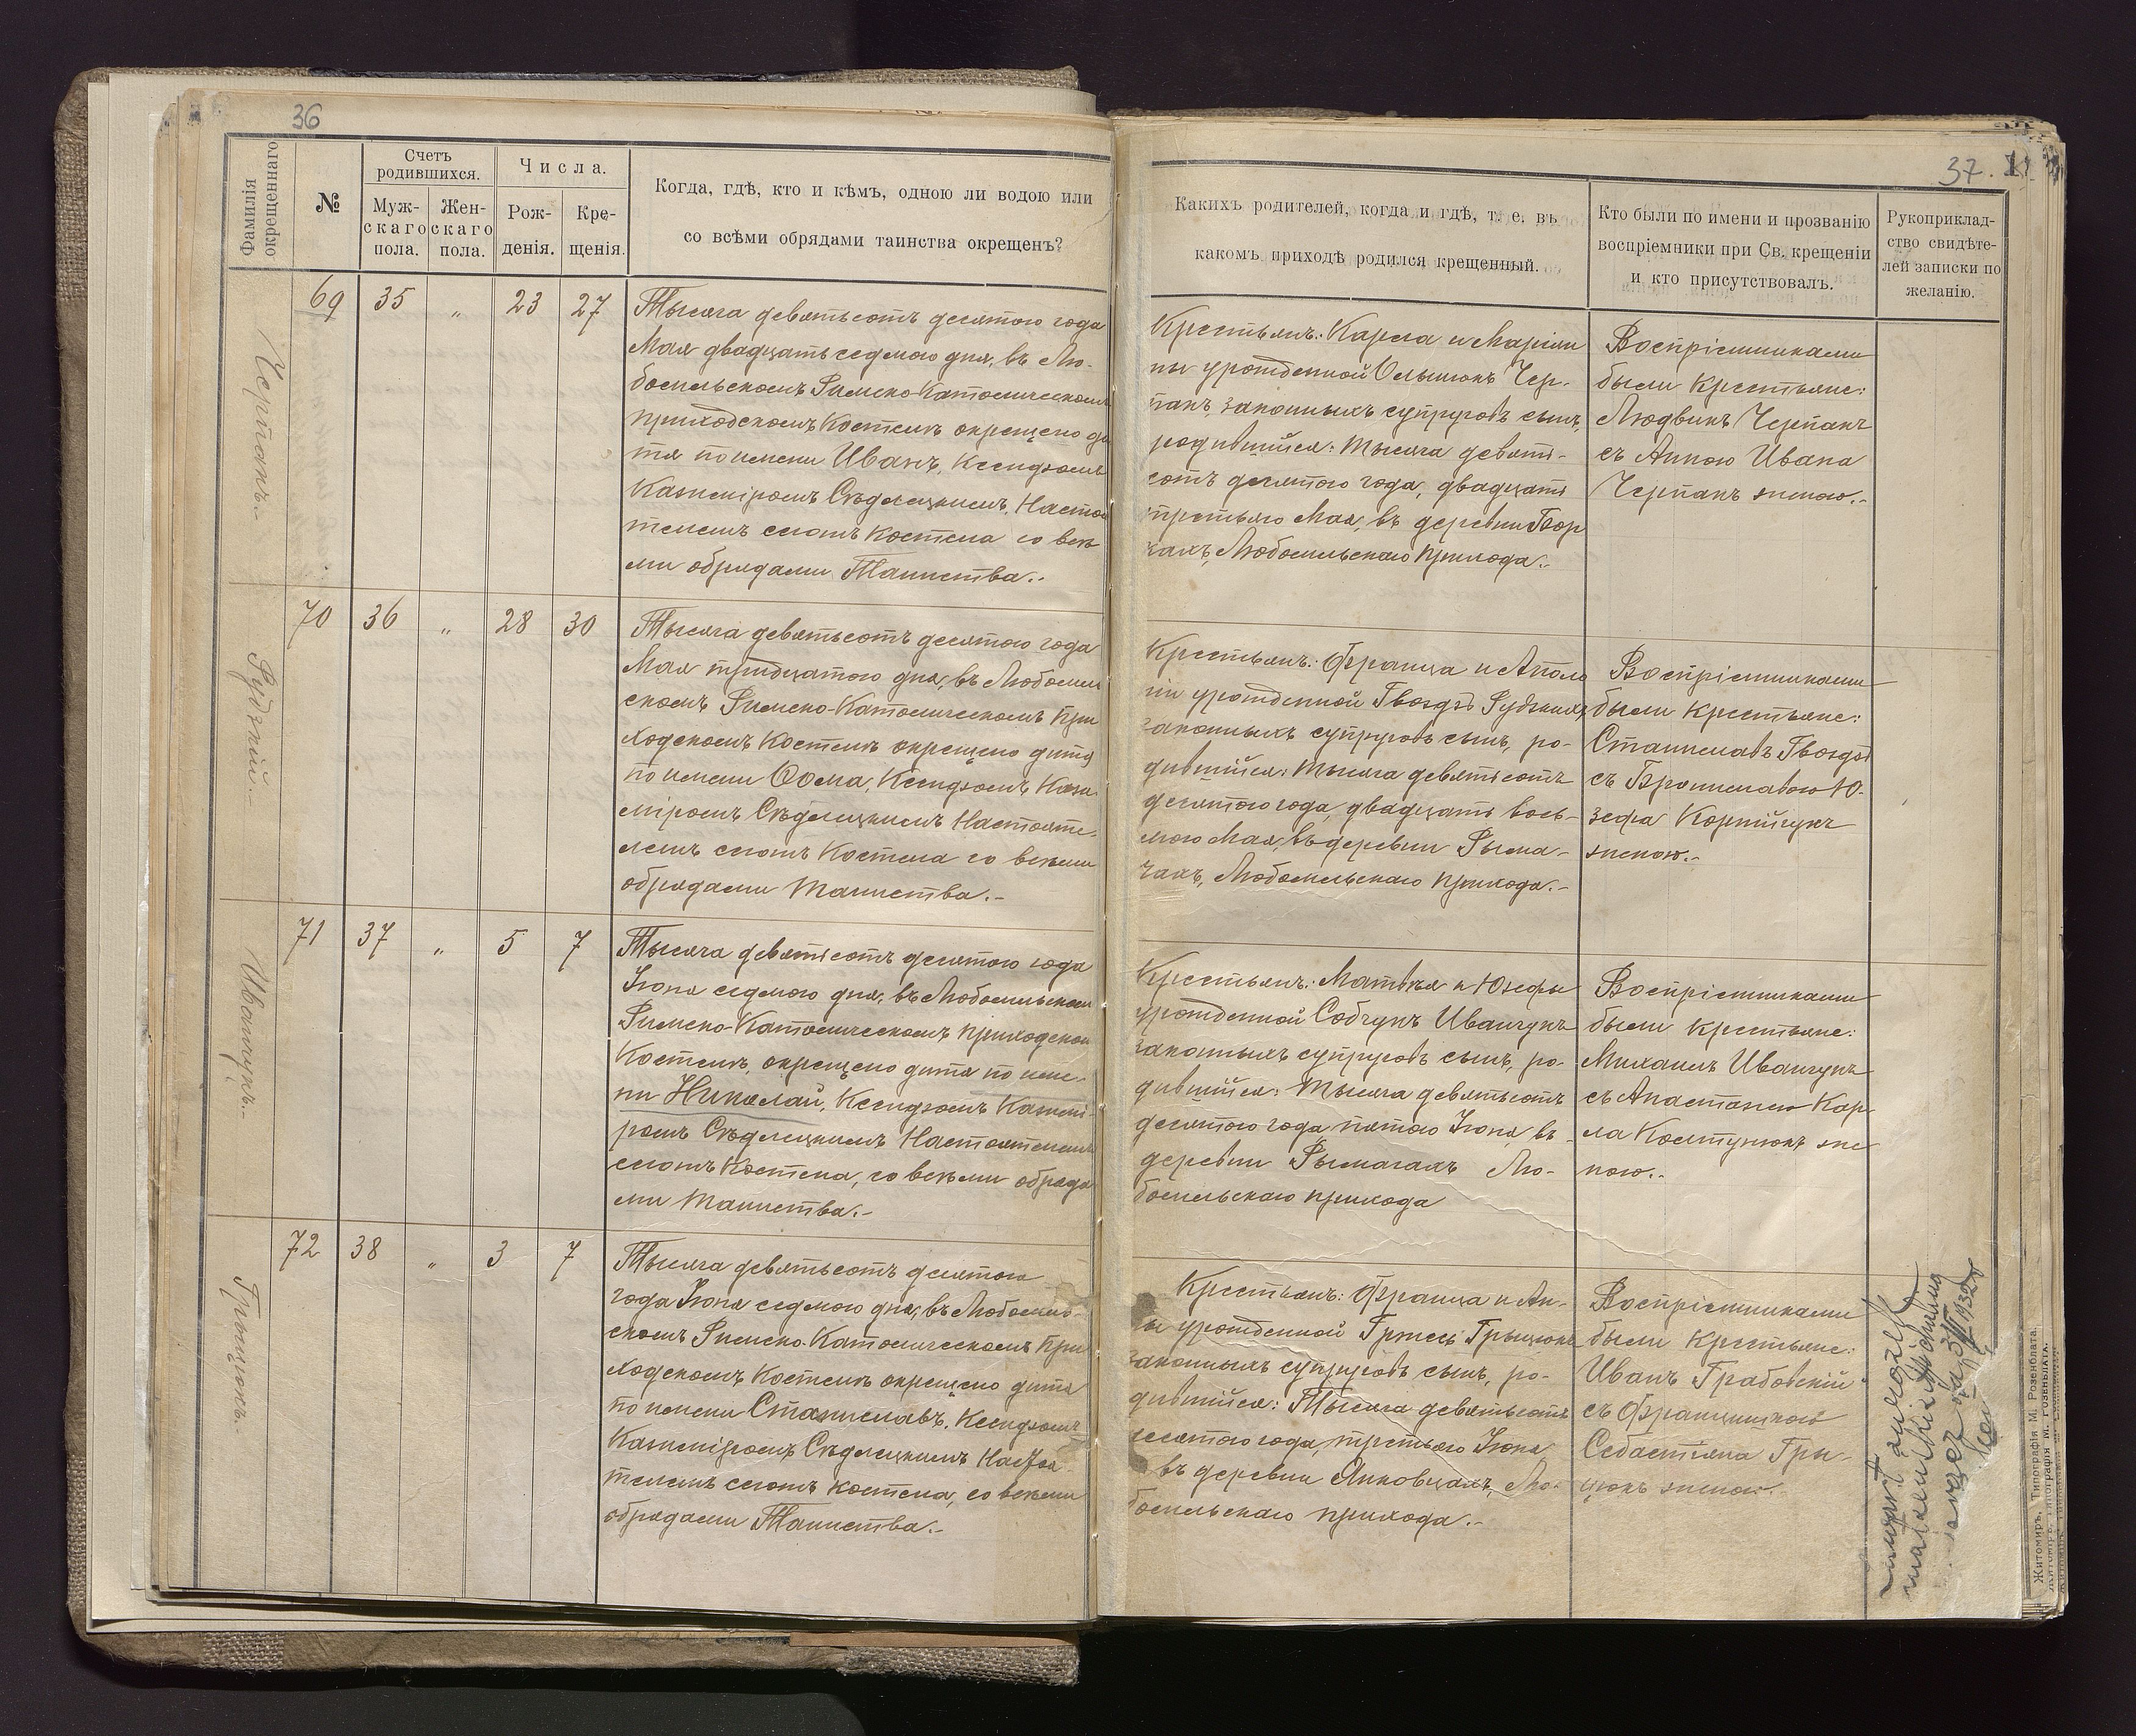 36
Фамилія
окрещеннаго
№
Счетъ
родившихся.
Муж-
скаго
пола.
Жен-
скаго
пола.
Числа.
Рож-
денія.
Кре-
щенія.
Когда, гдѣ, кто и кѣмъ, одною ли водою или
со всѣми обрядами таинства окрещенъ?
Черпакъ.-
69 35 „ 23 27
Тысяча девятьсотъ десятого года
Мая двадцать седмого дня, въ Лю-
бомльскомъ Римско-Католическомъ
приходскомъ Костелѣ окрещено ди
тя по имени Иванъ, Ксендзомъ
Казиміромъ Сѣдлецкимъ, Настоя
телемъ сегожъ Костела со всѣ
ми обрядами Таинства.-
Рудзкій.-
70 36 „ 28 30
Тысяча девятьсотъ десятого года
Мая тридцатого дня, въ Любомль
скомъ Римско-Католическомъ при
ходскомъ Костелѣ окрещено дитя
по имени Ѳома, Ксендзомъ Кази-
міромъ Сѣдлецкимъ Настояте-
лемъ сегожъ Костела со всѣми
обрядами таинства.-
Иванчукъ.-
71 37 „ 5 7
Тысяча девятьсотъ десятого года
Іюня седмого дня, въ Любомльском
Римско-Католическомъ приходском
Костелѣ, окрещено дитя по име-
ни Николай, Ксендзомъ Казимі
ромъ Сѣдлецкимъ Настоятелемъ
сегожъ Костела, со всѣми обряда
ми таинства.-
Грыцюкъ.-
72 38 „ 3 7
Тысяча девятьсотъ десятого
года Іюня седмого дня, въ Любомль-
скомъ Римско-Католическомъ при
ходскомъ Костелѣ окрещено дитя
по имени Станиславъ, Ксендзомъ
Казиміромъ Сѣдлецкимъ Настоя
телемъ сегожъ костела, со всѣми
обрядами Таинства.-
37.
Какихъ родителей, когда и гдѣ, т. е. въ
какомъ приходѣ родился крещенный.
Кто были по имени и прозванію
воспріемники при Св. крещеніи
и кто присутствовалъ.
Рукоприклад-
ство свидѣте-
лей записки по
желанію.
Крестьянъ: Карла и Маріан
ны урожденной Олышюкъ Чер-
пакъ, законныхъ супруговъ сынъ,
родившійся: тысяча девять-
сотъ десятого года, двадцать
третьяго Мая, въ деревни Бор
кахъ, Любомльскаго прихода.-
Воспріемниками
были крестьяне:
Людвикъ Черпакъ
съ Анною Ивана
Черпакъ женою.-
Крестьянъ: Франца и Аполо
ніи урожденной Гвоздь Рудзкихъ,
законныхъ супруговъ сынъ, ро-
дившійся: тысяча девятьсотъ
десятого года, двадцать вось-
мого Мая, въ деревни Рыма-
чахъ, Любомльскаго прихода.-
Воспріемниками
были крестьяне:
Станиславъ Гвоздь
съ Брониславою Ю-
зефа Корпійчукъ
женою.-
Крестьянъ: Матвѣя и Юзефы
урожденной Собчукъ Иванчукъ
законныхъ супруговъ сынъ, ро-
дившійся: тысяча девятьсотъ
десятого года пятого Іюня, въ
деревни Рымачахъ Лю-
бомльскаго прихода
Воспріемниками
были крестьяне:
Михаилъ Иванчукъ
съ Анастазіею Кар
ла Колтунюкъ же
ною.-
Крестьянъ: Франца и Ан-
ны урожденной Гржесь Грыцюкъ
законныхъ супруговъ сынъ, ро-
дившійся: Тысяча девятьсотъ
десятого года, третьяго Іюня
въ деревни Янковцахъ, Лю-
бомльскаго прихода.-
Воспріемниками
были Крестьяне:
Иванъ Грабовскій
съ Францишкою
Себастіяна Гры-
цюкъ женою
Житомиръ, Типографія М. Розенблата.